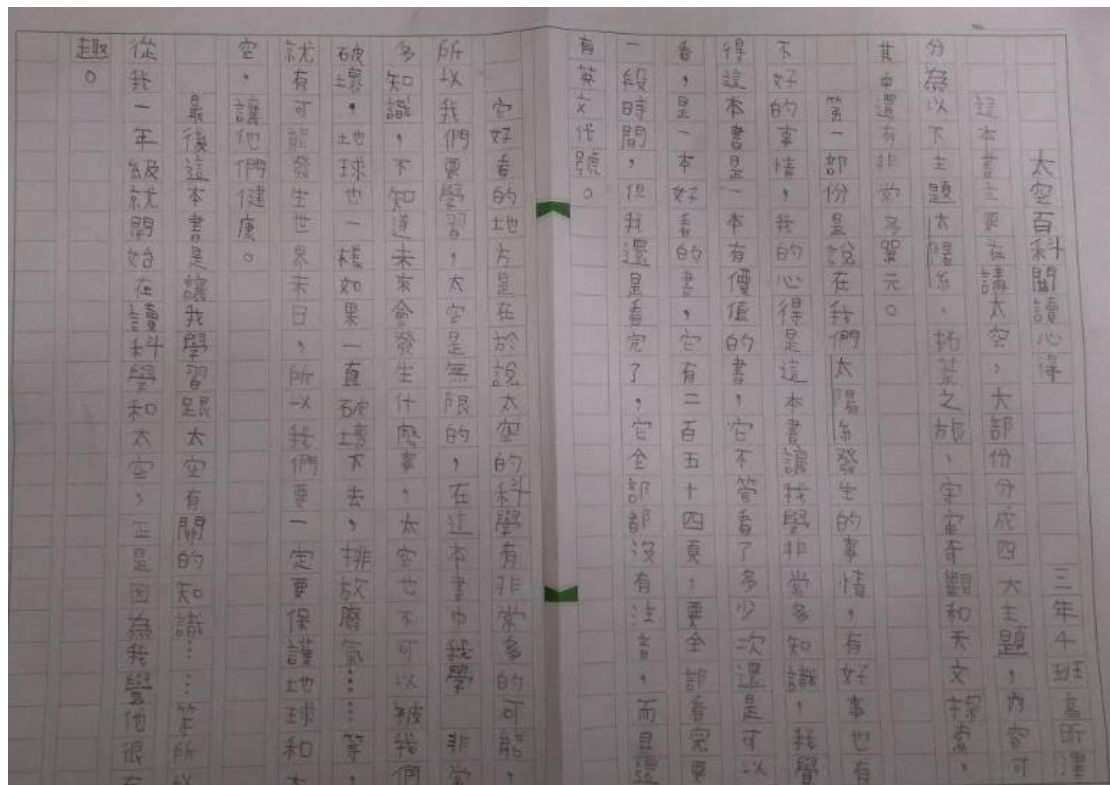 太空百科閱讀心得
三年4班高所澤
這本書主要在講太空，大部份分成四大主題，內容可
分為以下主題太陽系、拓荒之旅、宇宙奇觀和天文探索，
其中還有非常多單元。
第一部份是說在我們太陽系發生的事情，有好事也有
不好的事情，我的心得是這本書讓我學非常多知識，我覺
得這本書是一本有價值的書，它不管看了多少次還是可以
看，是一本好看的書，它有二百五十四頁，要全部看完要
一段時間，但我還是看完了，它全部都沒有注音，而且還
有英文代號。
它好看的地方是在於說太空的科學有非常多的可能，
所以我們要學習，太空是無限的，在這本書中我學非常
多知識，不知道未來會發生什麼事，太空也不可以被我們
破壞，地球也一樣如果一直破壞下去，排放廢氣……等，
就有可能發生世界末日，所以我們要一定要保護地球和太
空，讓他們健康。
最後這本書是讓我學習跟太空有關的知識……等所以
從我一年級就開始在讀科學和太空，正是因為我覺他很有
趣。